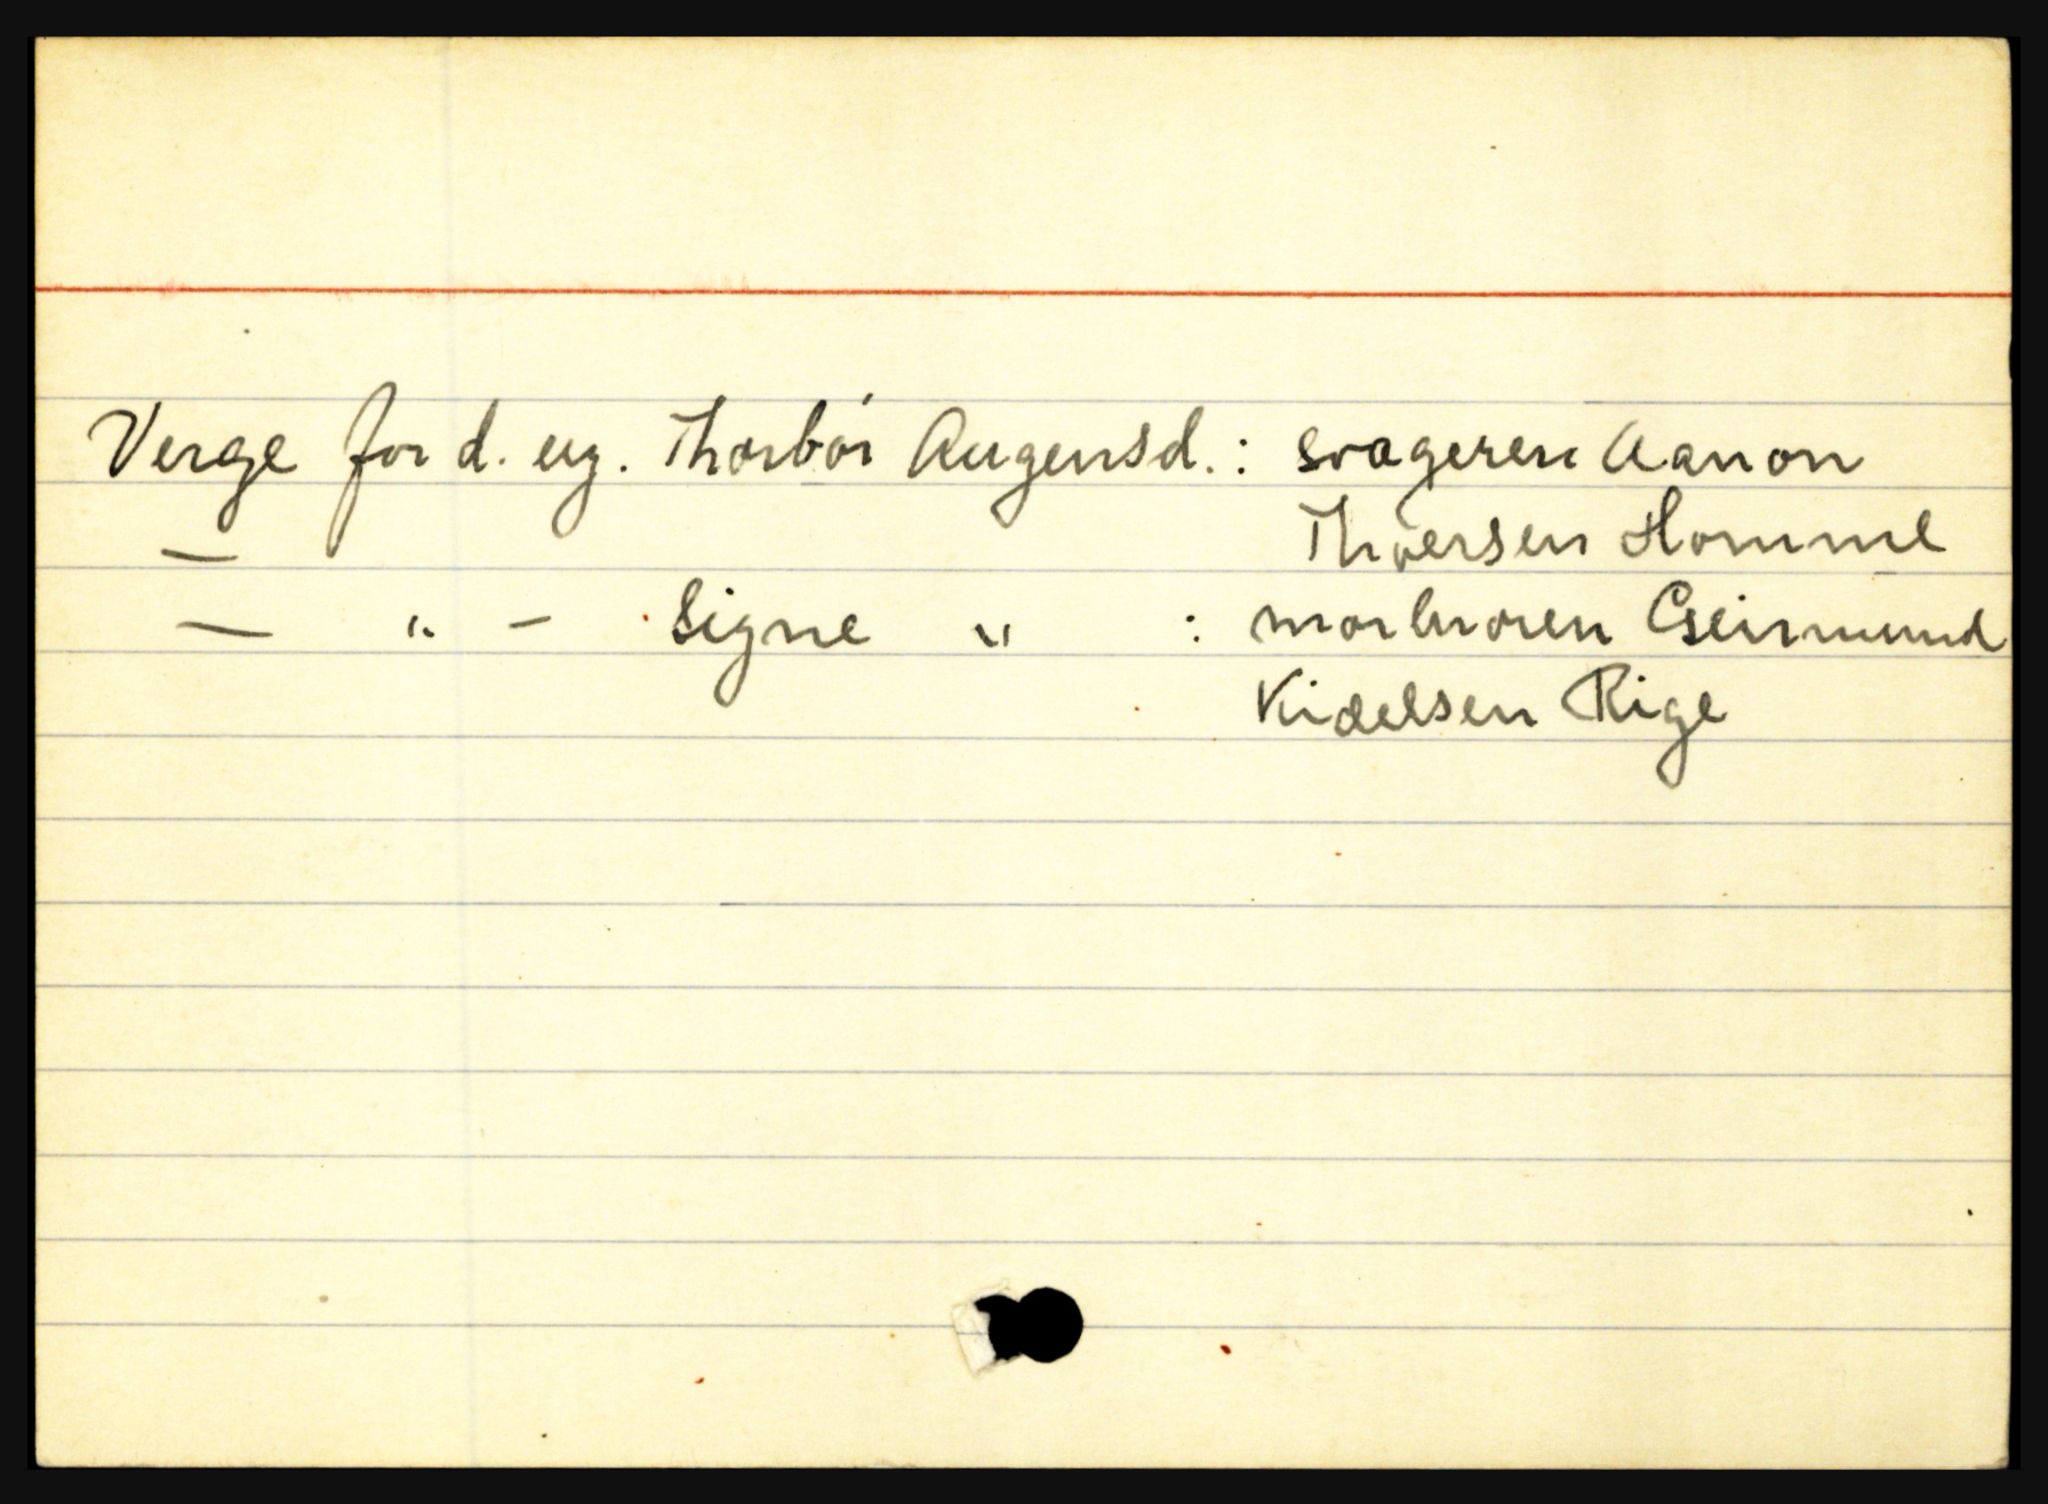 Verge for d. eng. Thorbor Augensd.: svageren Aanon
— Thoersen Homme
— " – Signe " : morbroren Geirmund
Kidelsen Rige